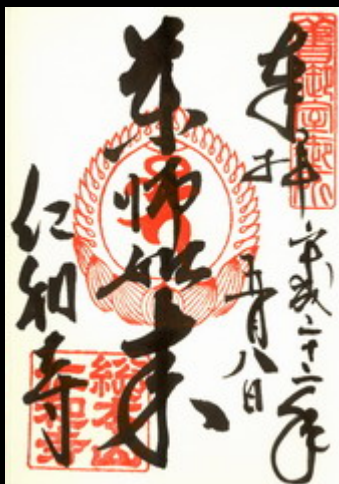 舊御室御所
奉拝
平成二十二年
五月八日
薬師如来
仁和寺
総本山
仁和寺